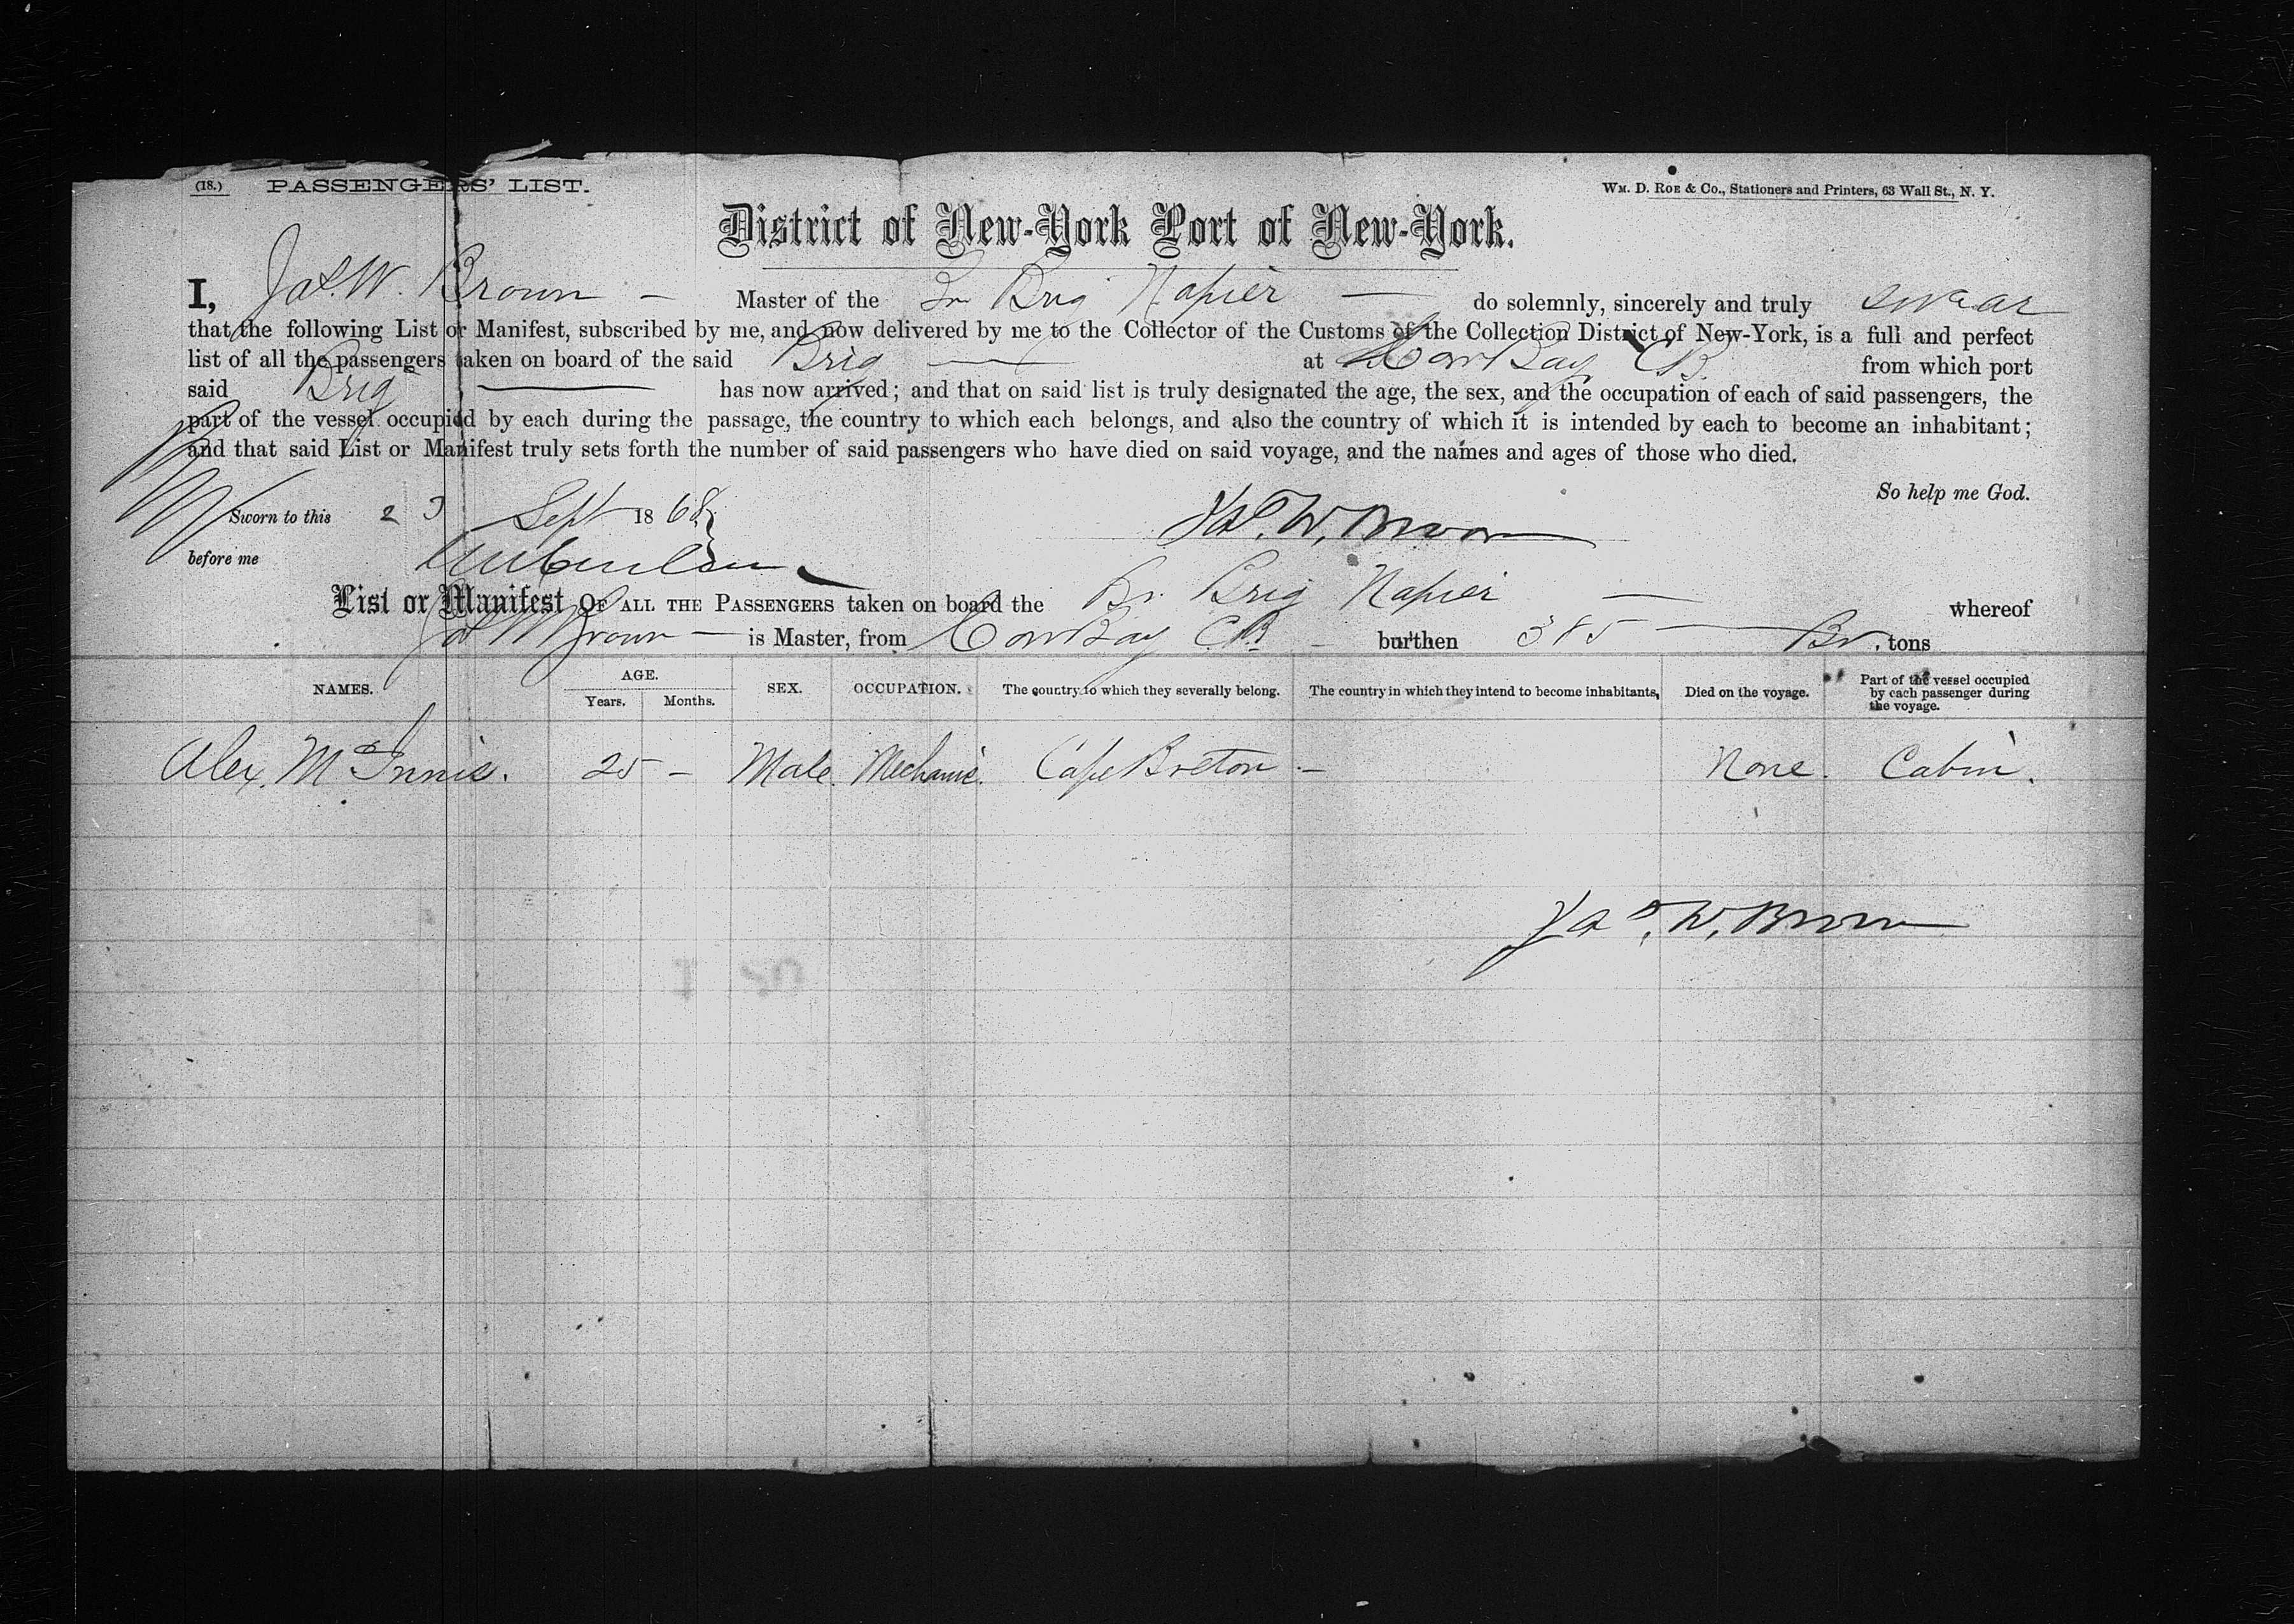 (18.) PASSENGERS' LIST. WM. D. ROE & CO., Stationers and Printers, 63 Wall St., N. Y.
District of New-York Port of New-York.
I, Jas. W. Brown — Master of the Br Brig Napier — do solemnly, sincerely and truly swear
that the following List or Manifest, subscribed by me, and now delivered by me to the Collector of the Customs of the Collection District of New-York, is a full and perfect
list of all the passengers taken on board of the said Brig — at Cow Bay CB. from which port
said Brig — has now arrived; and that on said list is truly designated the age, the sex, and the occupation of each of said passengers, the
part of the vessel occupied by each during the passage, the country to which each belongs, and also the country of which it is intended by each to become an inhabitant;
and that said List or Manifest truly sets forth the number of said passengers who have died on said voyage, and the names and ages of those who died.
So help me God.
Sworn to this 23 Sept 1868 Jas. W. Brown
before me
List or Manifest OF ALL THE PASSENGERS taken on board the Br. Brig Napier — whereof
Jas W Brown — is Master, from Cow Bay C.B. burthen 385 — Br. tons
NAMES. AGE. Years. Months. SEX. OCCUPATION. The country to which they severally belong. The country in which they intend to become inhabitants. Died on the voyage. Part of the vessel occupied by each passenger during the voyage.
Alex. McInnis. 25 – Male. Mechanic. Cape Breton – None. Cabin.
Jas. W. Brown